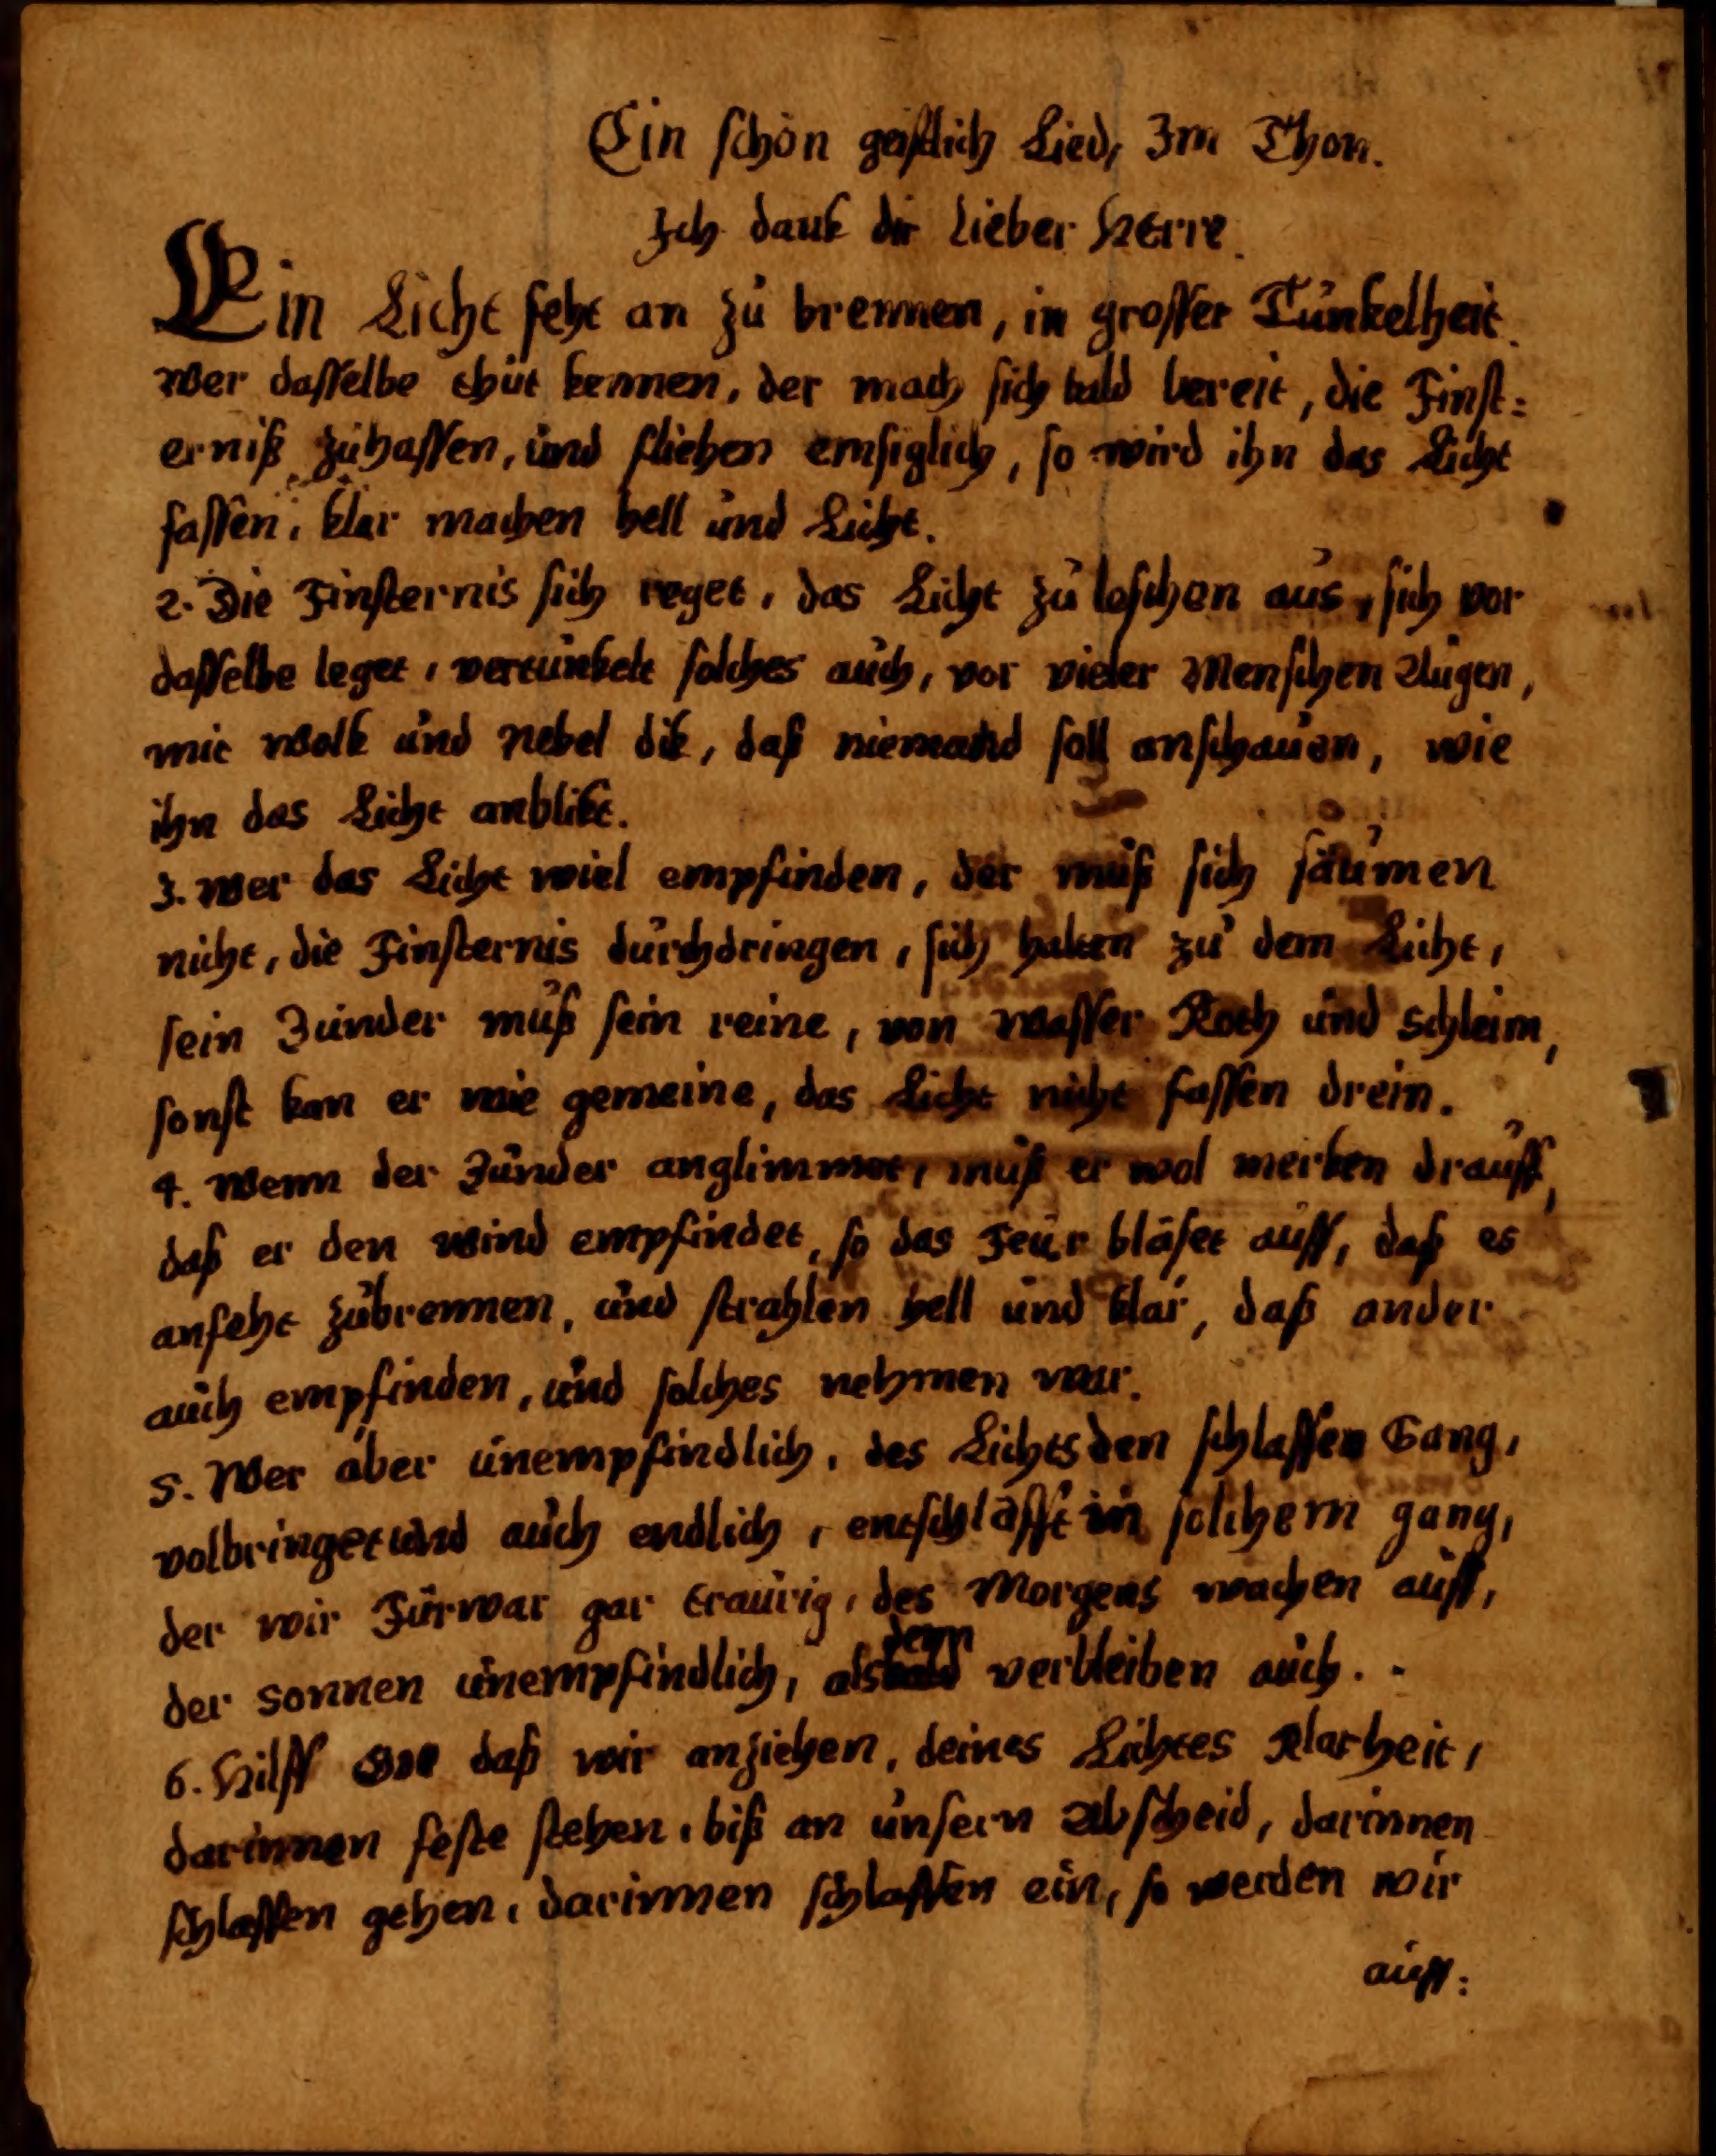 Ein schön geistlich Lied, Im Thon.
Ich dank dir Lieber Herre.
Ein Licht feht an zu brennen, in grosser Tunkelheit.
Wer dasselbe thut kennen, der mach sich bald bereit, die Finst=
erniß zuhassen, und fliehen emsiglich, so wird ihn das Licht
fassen, klar machen hell und Licht.
2. Die Finsternis sich reget, das Licht zu leschen aus, sich vor
dasselbe leget, vertunkelt solches auch, vor vieler Menschen Augen,
mit Wolk und Nebel dik, daß niemand soll anschauen, wie
ihn das Licht anblikt.
3. Wer das Licht wiel empfinden, der muß sich säumen
nicht, die Finsternis durchdringen, sich halten zu dem Licht,
sein Zunder muß sein reine, von Wasser Koth und Schleim,
sonst kan er wie gemeine, das Licht nicht fassen drein.
4. Wenn der Zunder anglimmet, muß er wol merken drauff,
daß er den Wind empfindet, so das Feur bläset auff, daß es
anfeht zubrennen, und strahlen hell und klar, daß ander
auch empfinden, und solches nehmen war.
5. Wer aber unempfindlich, des Lichts den schlaffen Gang,
volbringet und auch endlich, entschläfft in solchem gang,
der wir Fürwar gar traurig, des Morgens wachen auff,
der Sonnen unempfindlich, alsdenn verbleiben auch.
6. Hilff Gott daß wir anziehen, deines Lichtes Klarheit,
darinnen feste stehen, biß an unsern Abscheid, darinnen
schlaffen gehen, darinnen schlaffen ein, so werden wir
auff: